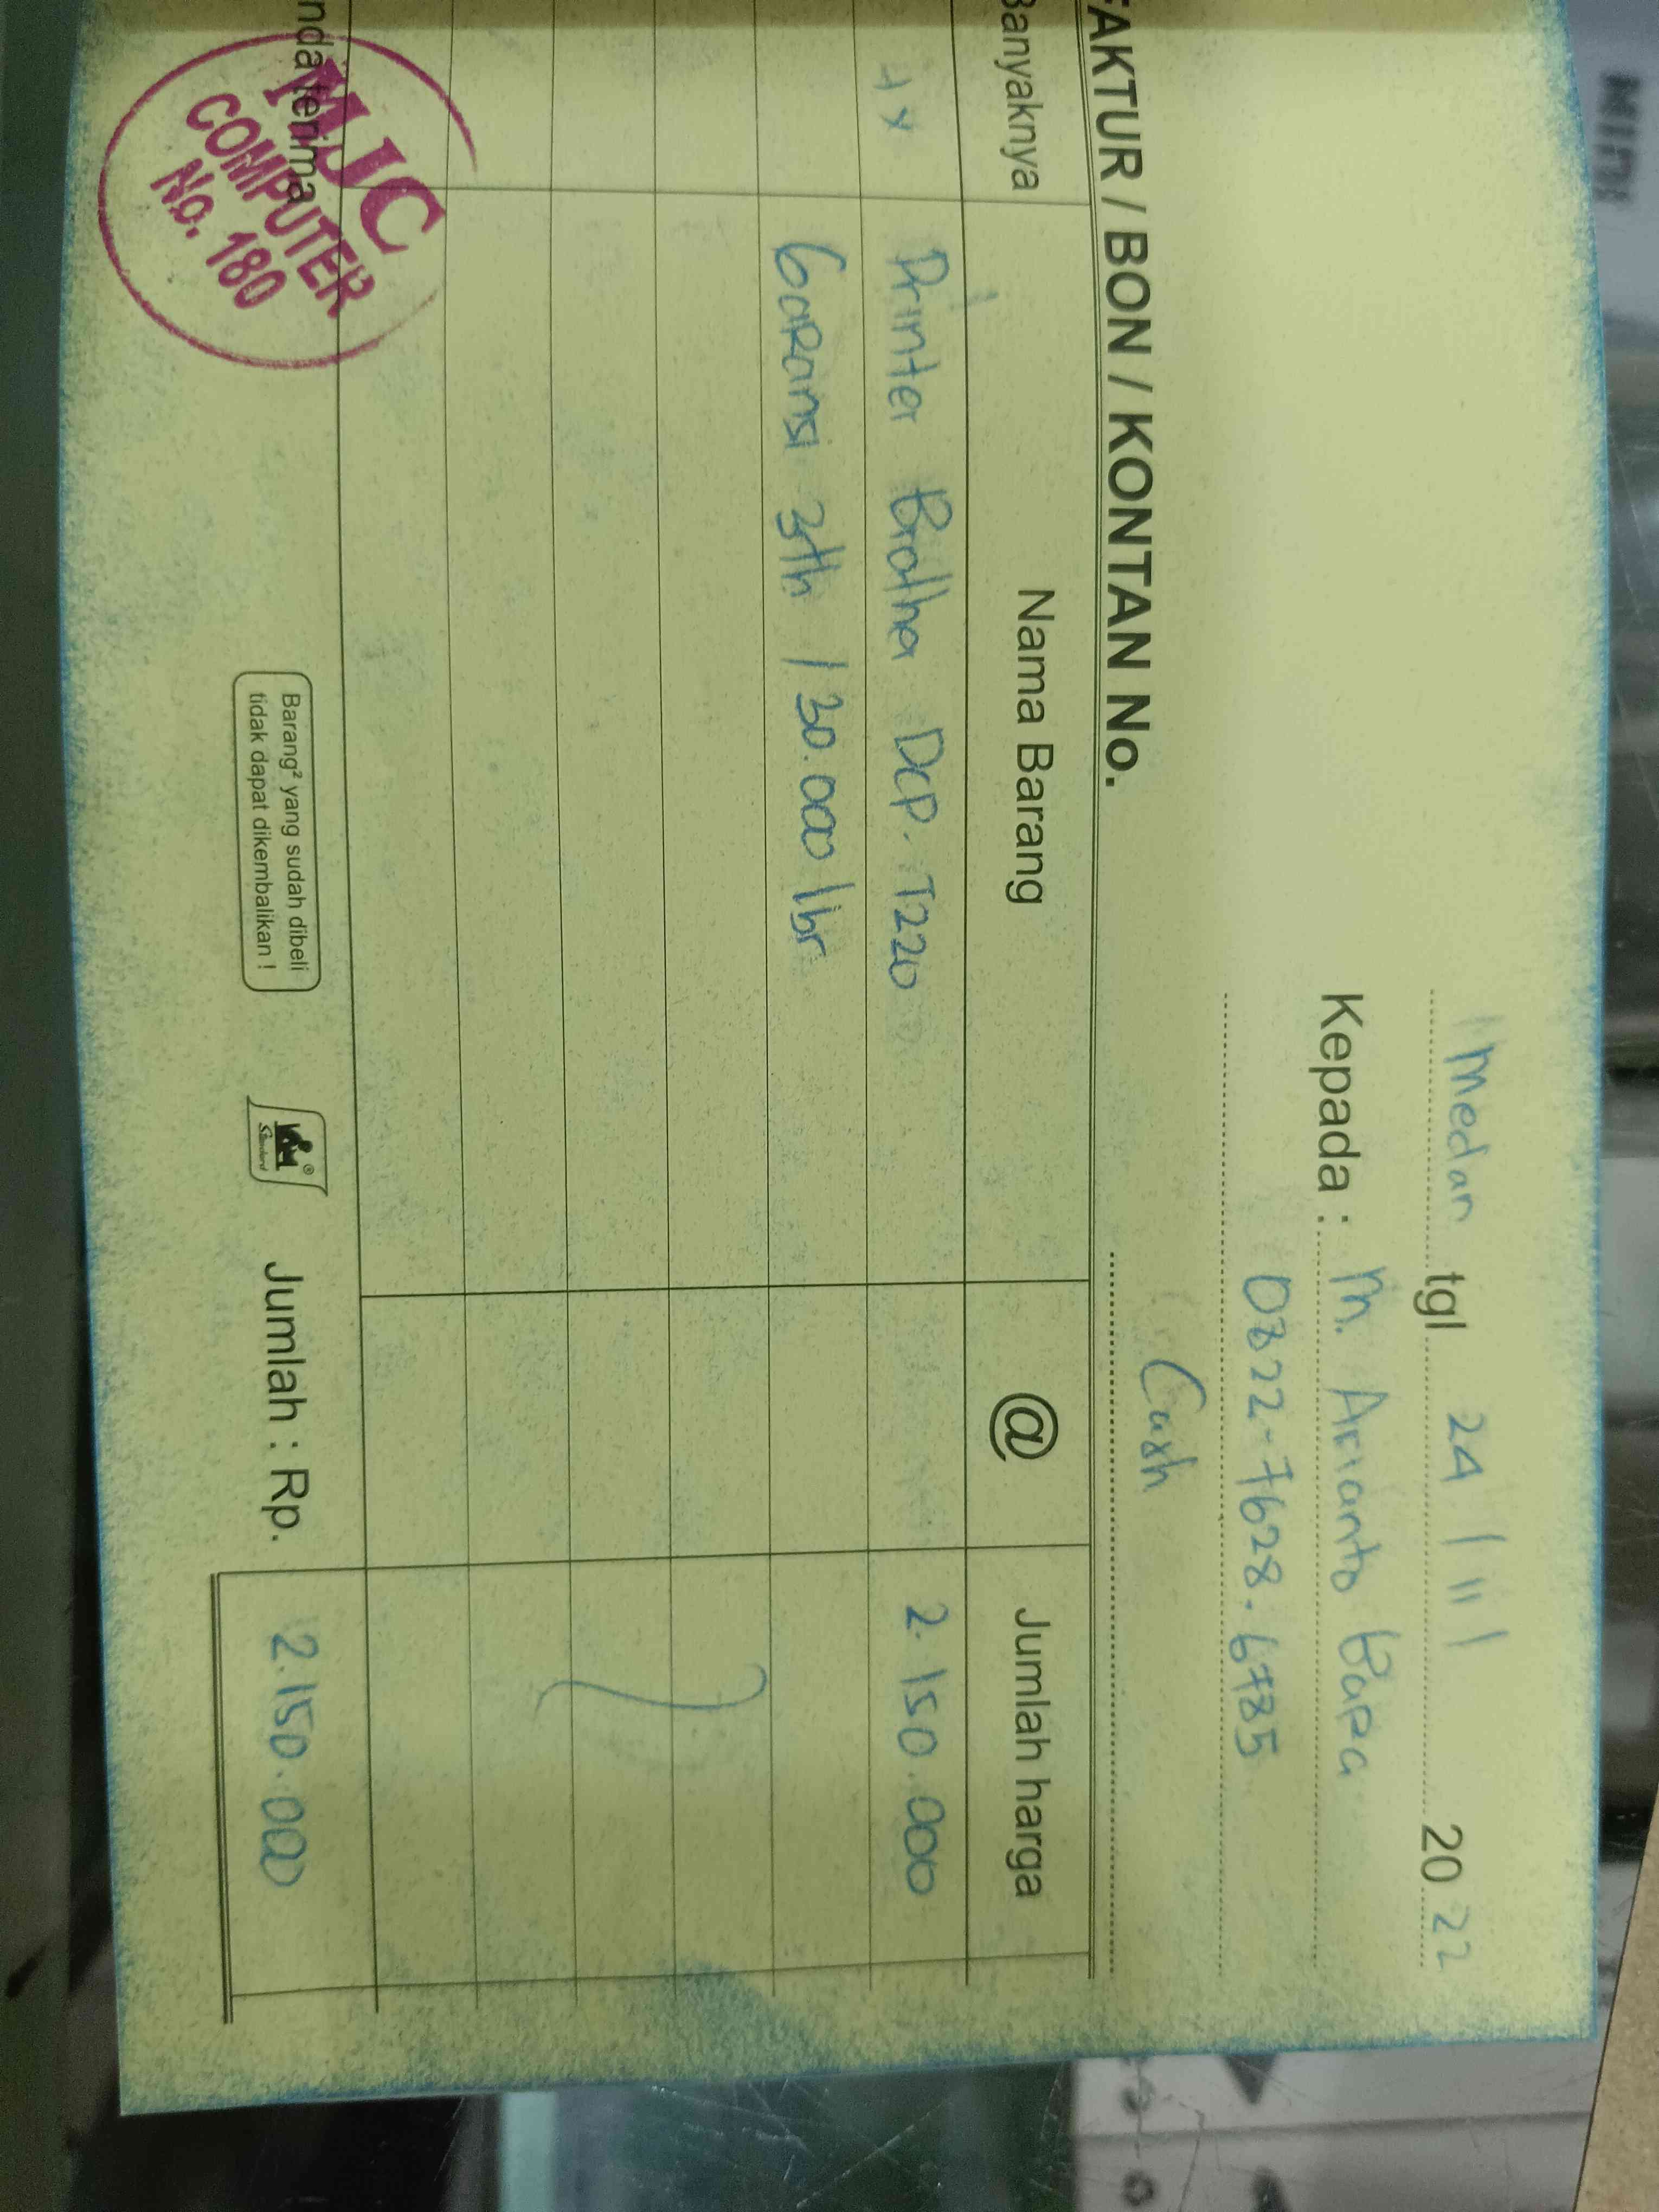 Medan tgl 24 / 11 / 2022
Kepada : M. Arianto Bapa
0822-7628.6785
FAKTUR / BON / KONTAN No. Cash
Banyaknya Nama Barang @ Jumlah harga
1x Printer Brother DCP. T220 2.150.000
Garansi 3th / 30.000 lbr
Jumlah : Rp. 2.150.000
nda terima
Barang² yang sudah dibeli
tidak dapat dikembalikan !
MJC
COMPUTER
No. 180